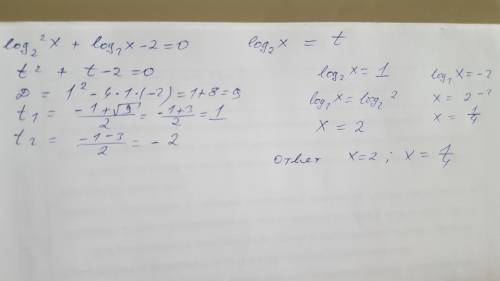 log₂²x + log₂x - 2 = 0
t² + t - 2 = 0
D = 1² - 4·1·(-2) = 1 + 8 = 9
t₁ = (-1+√9)/2 = (-1+3)/2 = 1
t₂ = (-1-3)/2 = -2
log₂x = t
log₂x = 1
log₂x = log₂2
x = 2
log₂x = -2
x = 2⁻²
x = 1/4
ответ x=2 ; x = 1/4